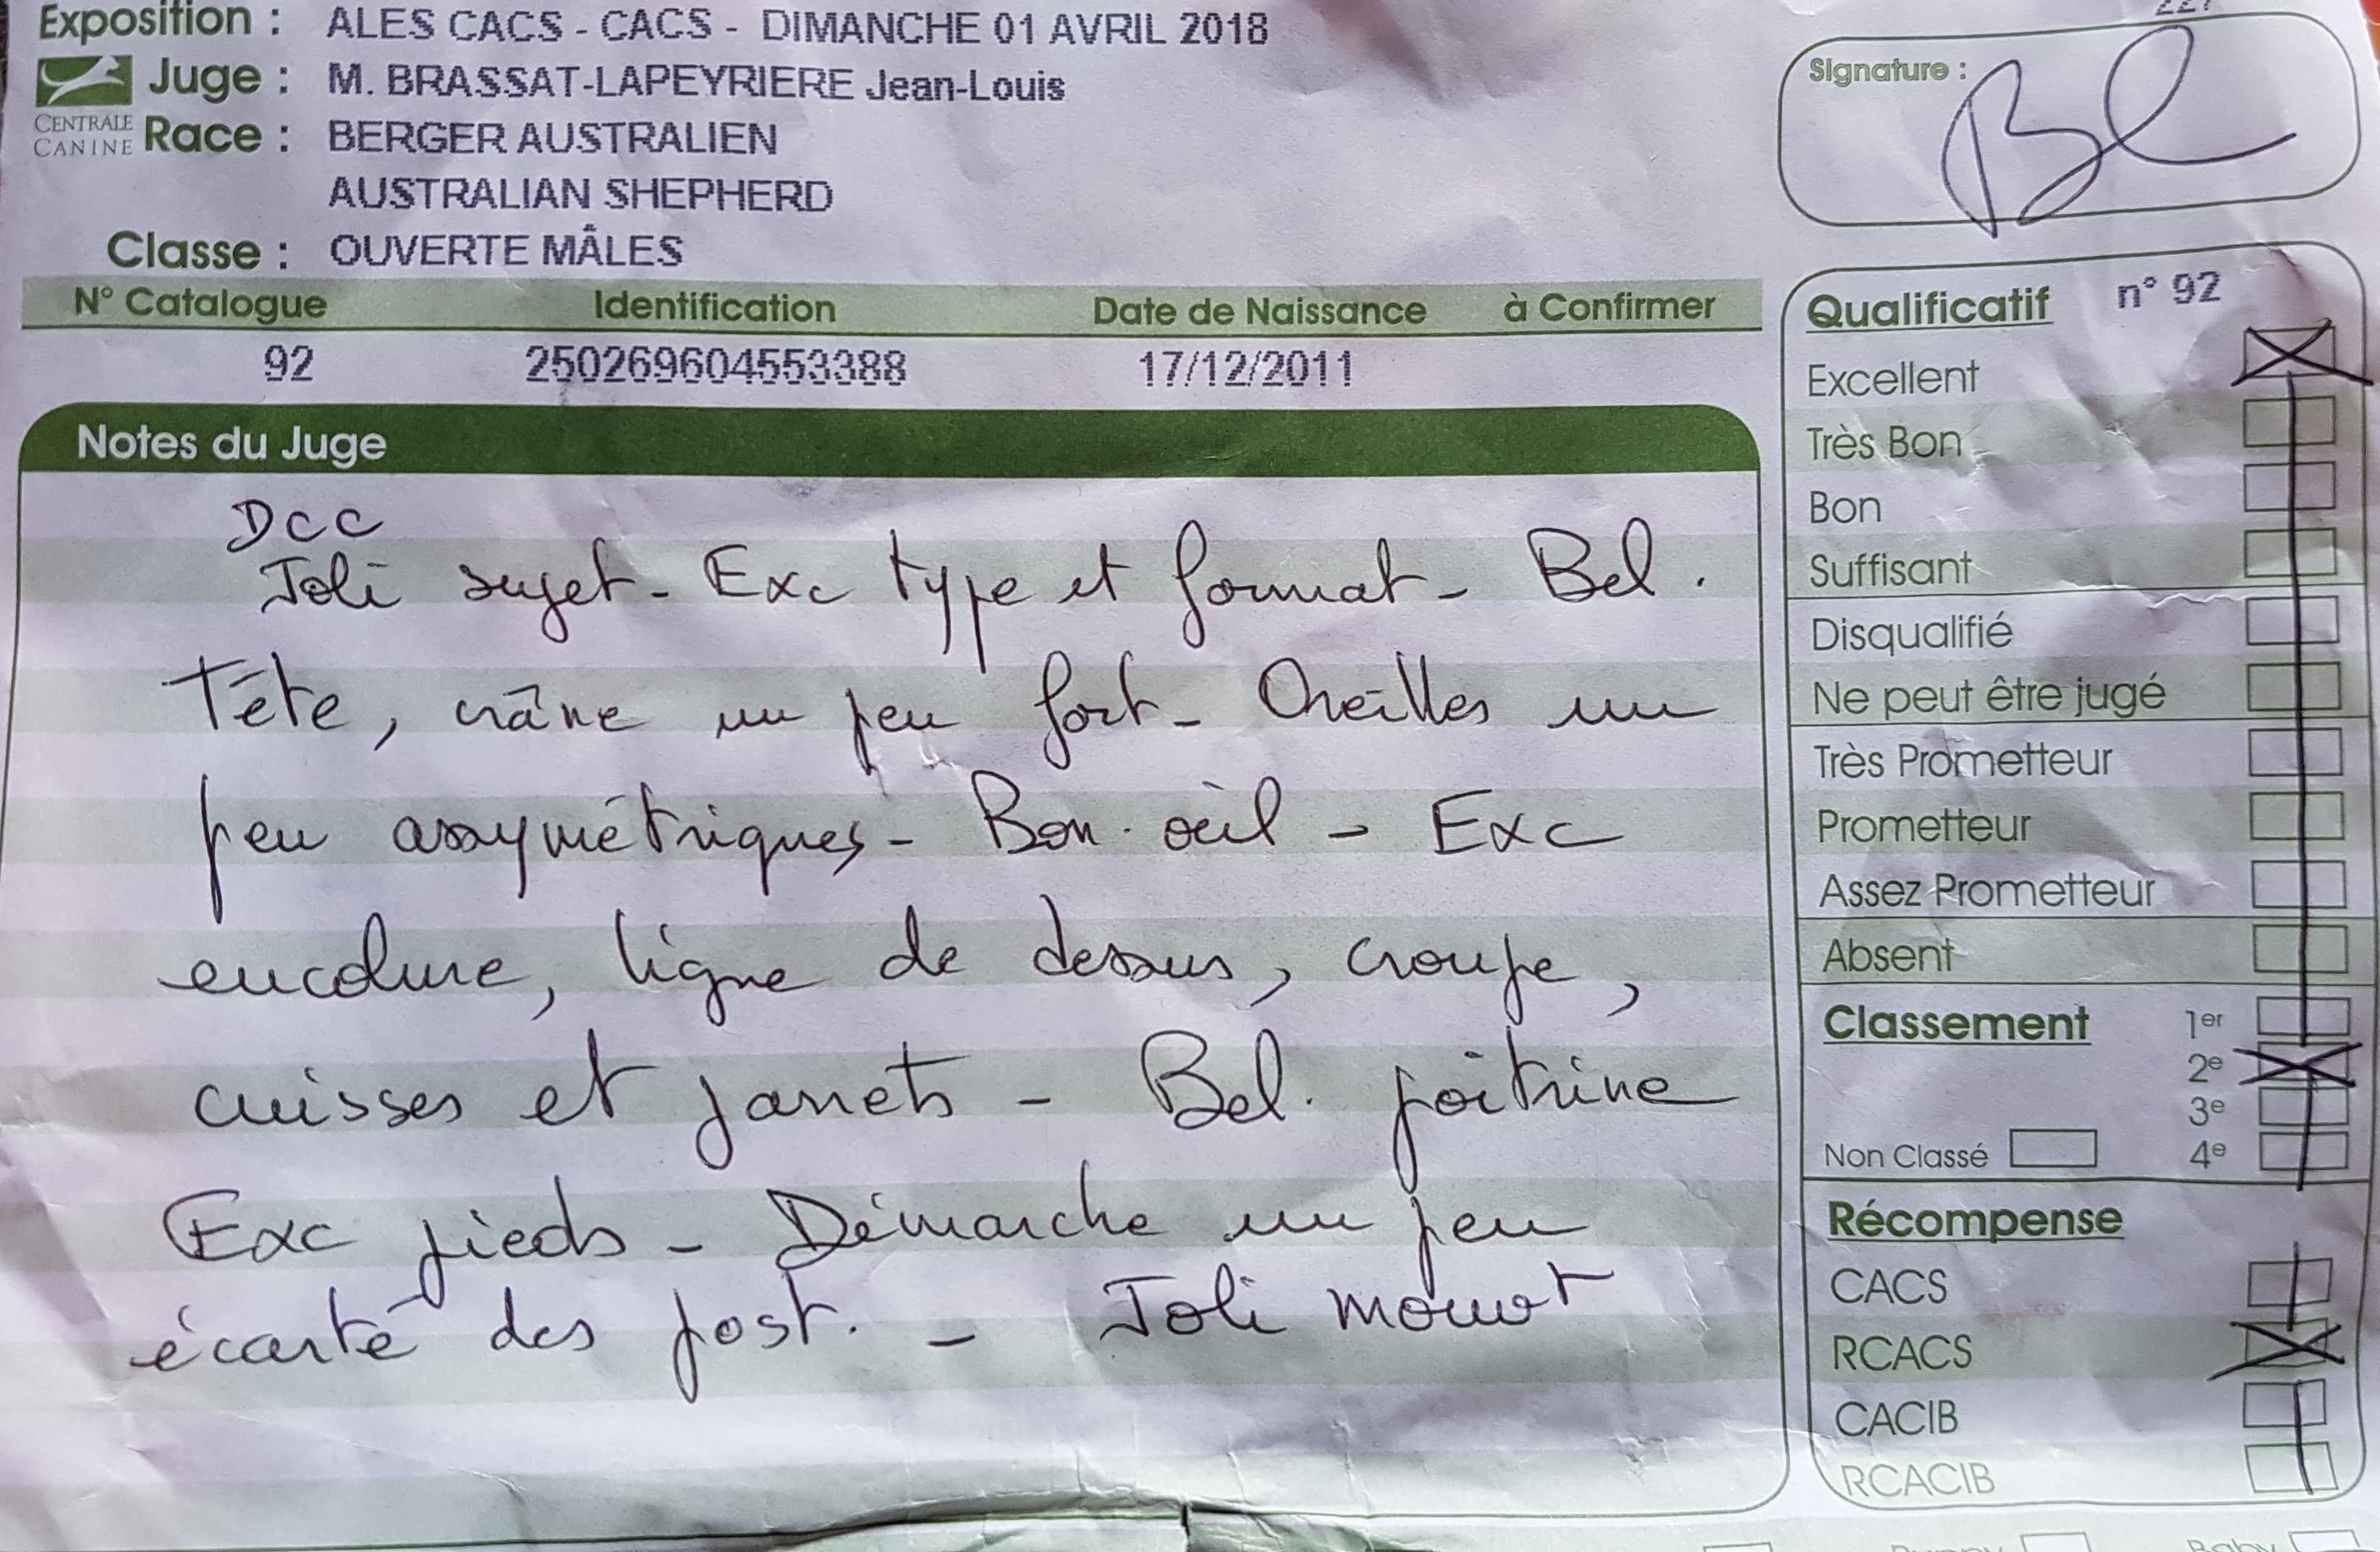 Exposition : ALES CACS - CACS - DIMANCHE 01 AVRIL 2018
Juge : M. BRASSAT-LAPEYRIERE Jean-Louis
CENTRALE CANINE
Race : BERGER AUSTRALIEN
AUSTRALIAN SHEPHERD
Classe : OUVERTE MÂLES
N° Catalogue Identification Date de Naissance à Confirmer
92 250269604553388 17/12/2011
Notes du Juge
Dcc
Joli sujet - Exc type et format - Bel.
Tête, crâne un peu fort - Oreilles un
peu assymétriques - Bon oeil - Exc
encolure, ligne de dessus, croupe,
cuisses et jarrets - Bel. poitrine
Exc pieds - Démarche un peu
écarté des post. - Joli mouvt
Signature :
Qualificatif n° 92
Excellent
Très Bon
Bon
Suffisant
Disqualifié
Ne peut être jugé
Très Prometteur
Prometteur
Assez Prometteur
Absent
Classement 1er
2e
3e
Non Classé 4e
Récompense
CACS
RCACS
CACIB
RCACIB